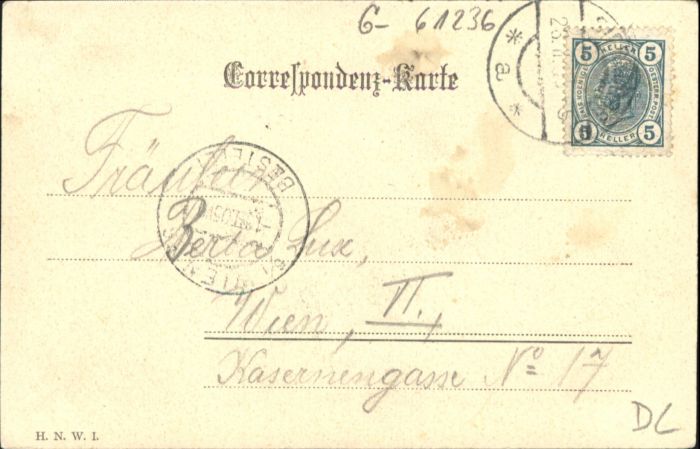 G- 61236
Correspondenz-Karte
5 HELLER 5
KAIS. KOENIGL. OESTERR. POST
5 HELLER 5
* a *
BESTELLT
WIEN
Fräulein
Berta Lux,
Wien, VI.,
Kasernengasse No 17
DL
H. N. W. I.